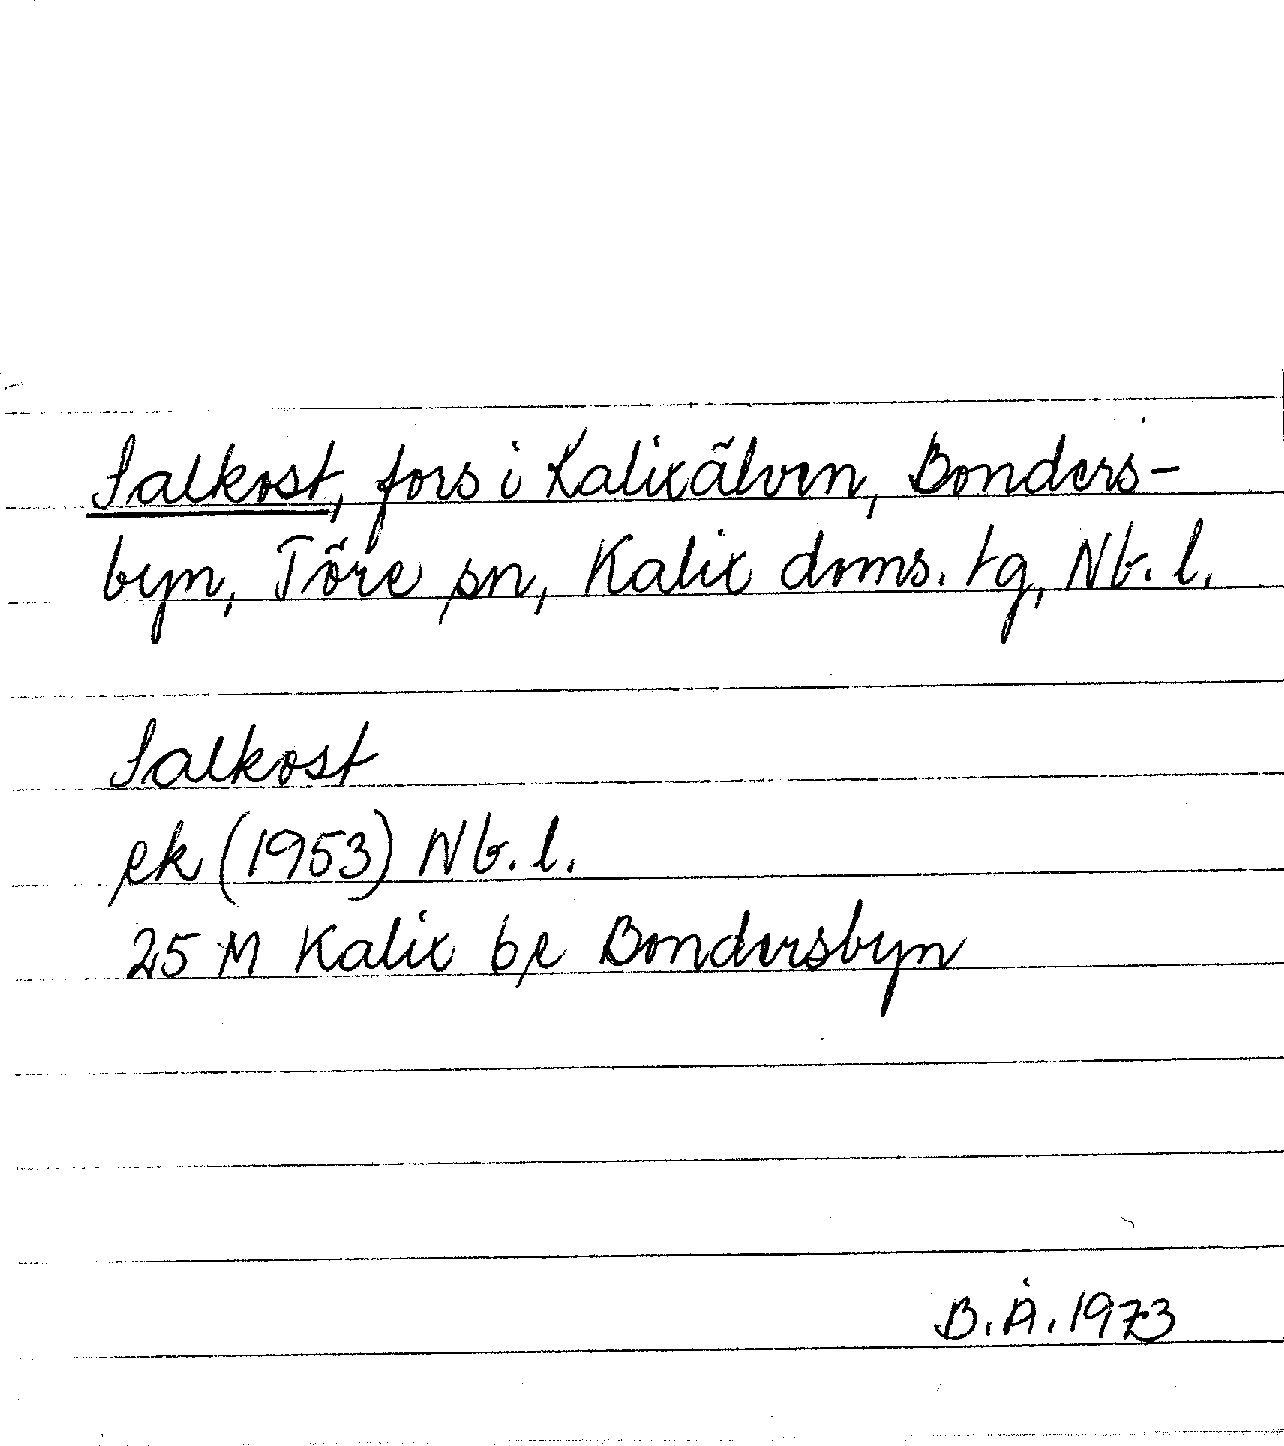 Salkost, fors i Kalixälven, Bonders-
byn, Töre sn, Kalix doms. tg, Nb. l.
Salkost
ek (1953) Nb. l.
25 M Kalix bl Bondersbyn
B. Å. 1973